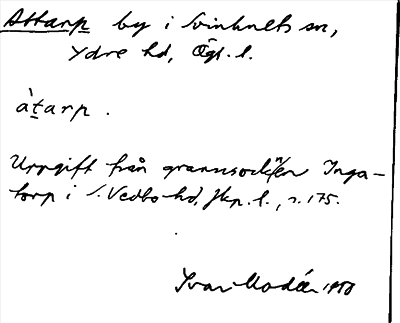 Attarp by i Svinhults sn,
Ydre hd, Ögl. l.
àt̠arp.
Uppgift från grannsocknen Inga-
torp i S. Vedbo hd, Jkp. l., s. 175.
Ivar Modéer 1950